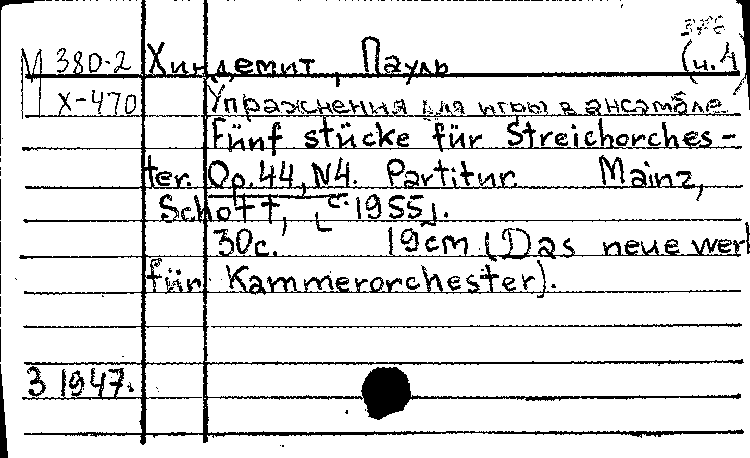 376
М 380-2 Хиндемит, Пауль (ч.4)
Х-470 Упражнения для игры в ансамбле
Fünf stücke für Streichorches-
ter. Op.44, N4. Partitur. Mainz,
Schott, [c. 1955].
30с. 19cm (Das neue werk
für Kammerorchester).
З 1947.